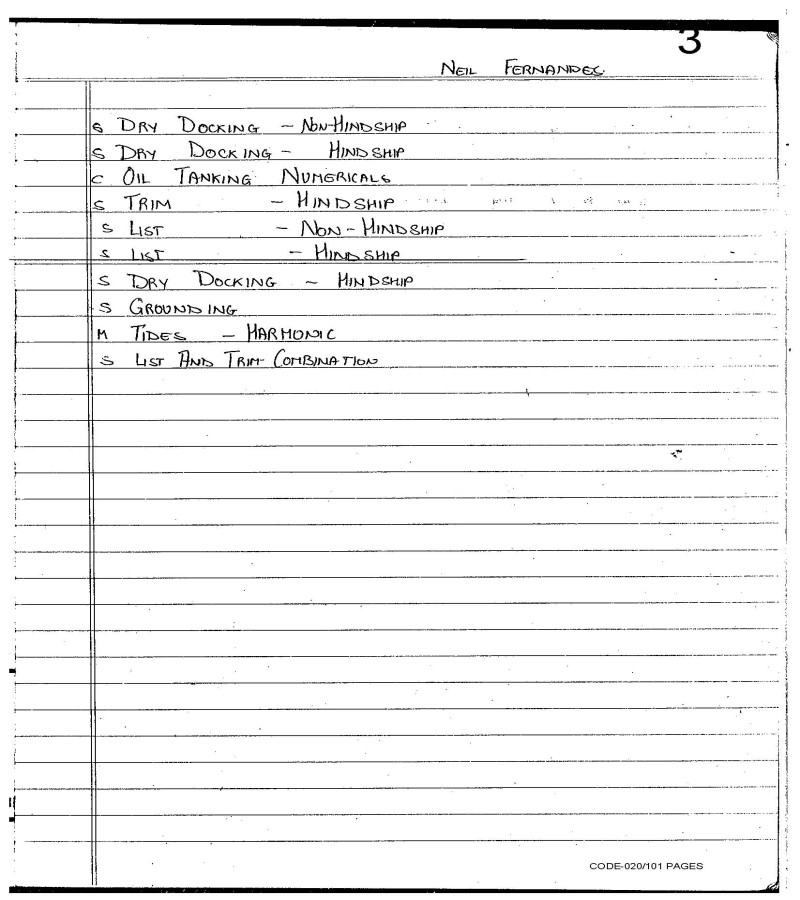 3
NEIL FERNANDES
S DRY DOCKING - NON-HINDSHIP
S DRY DOCKING - HINDSHIP
C OIL TANKING NUMERICALS
S TRIM - HINDSHIP
S LIST - NON-HINDSHIP
S LIST - HINDSHIP
S DRY DOCKING - HINDSHIP
S GROUNDING
M TIDES - HARMONIC
S LIST AND TRIM COMBINATION
CODE-020/101 PAGES